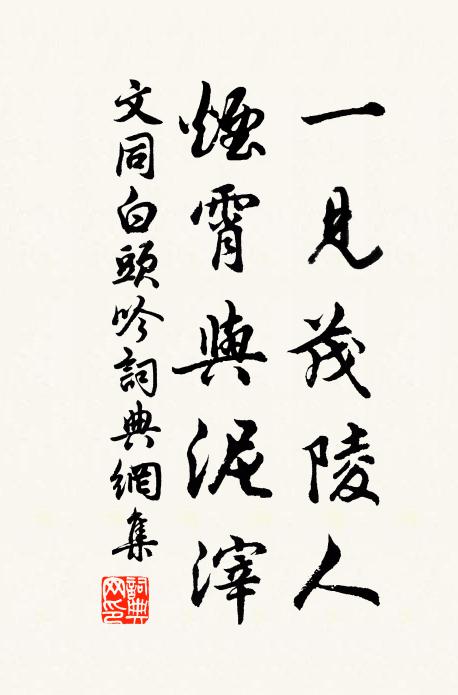 一見茂陵人
煙霄與泥滓
文同白頭吟詞典網集
詞典網印